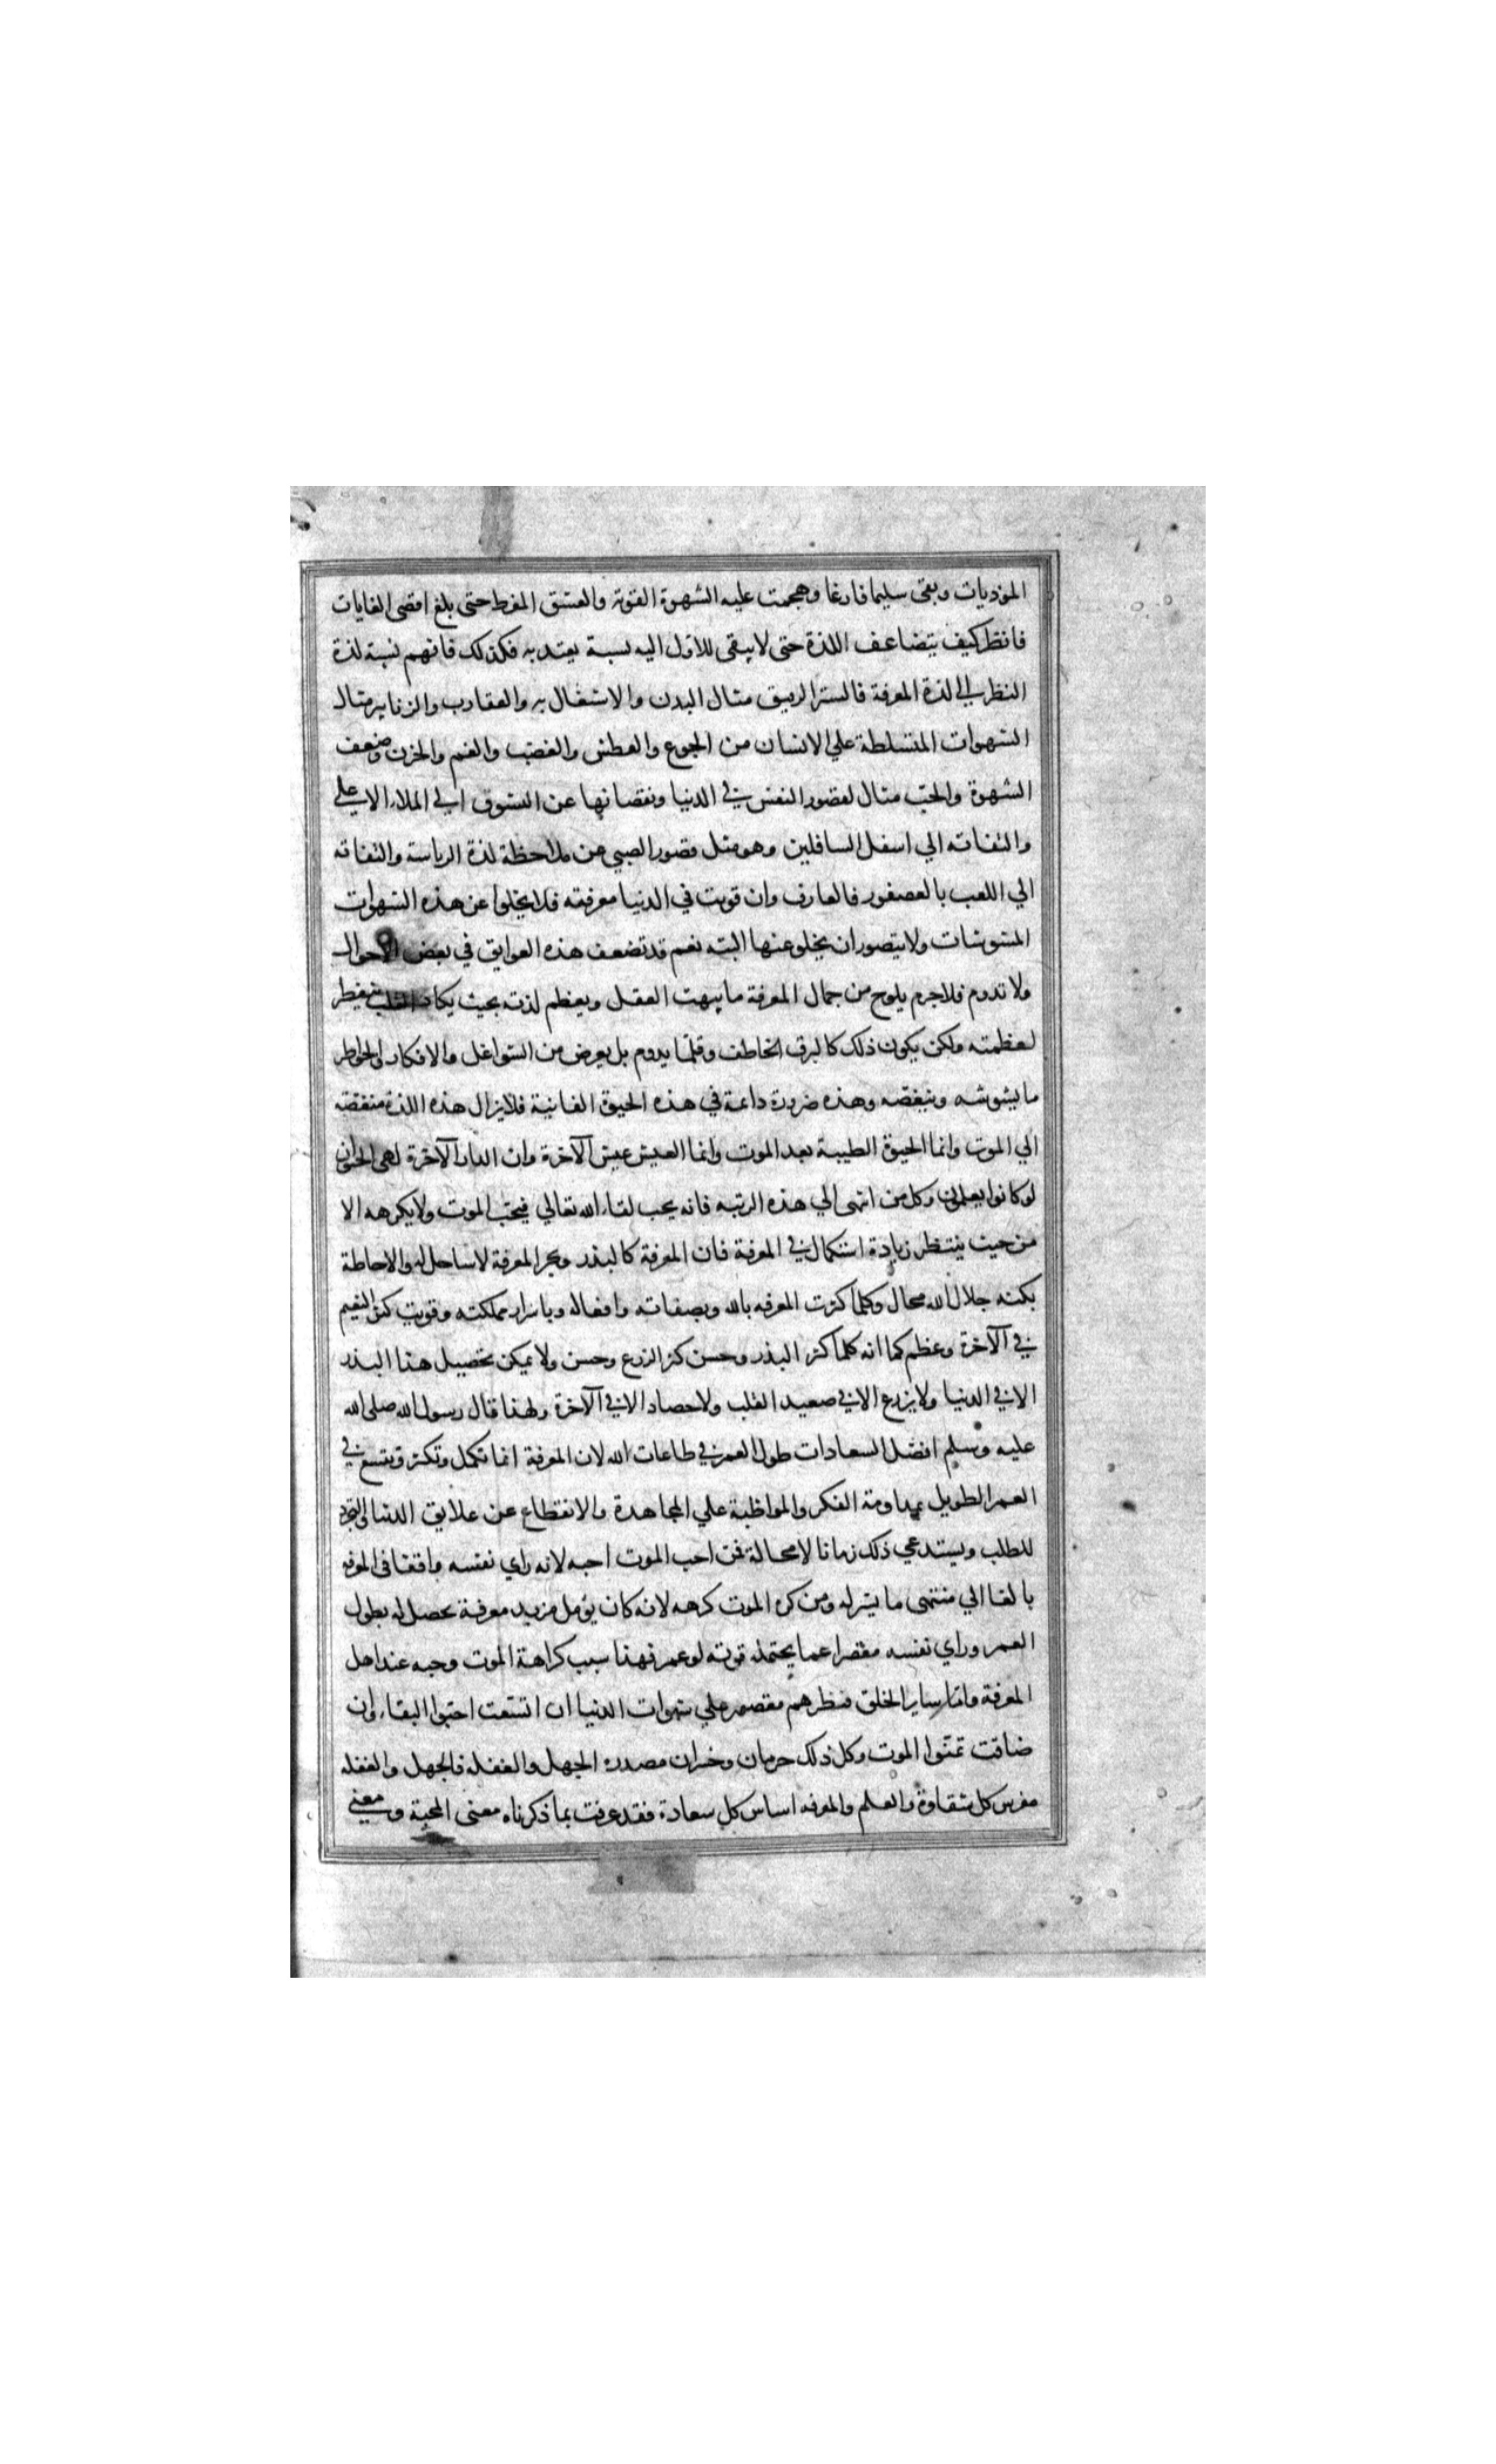 الموذيات وبقى سليما فارغا وهجمت عليه الشهوة القوية والعشق المفرط حتى بلغ اقصى الغايات
فانظر كيف يتضاعف اللذة حتى لا يبقى للاول اليه نسبة يعتد به فكذلك فافهم نسبة لذة
النظر الي لذة المعرفة فالستر الرقيق مثال البدن والاشتغال به والعقارب والزنابير مثال
الشهوات المتسلطة علي الانسان من الجوع والعطش والغضب والغم والحزن وضعف
الشهوة والحب مثال لقصور النفس في الدنيا ونقصانها عن الشوق الي الملاء الاعلي
والتفاته الي اسفل السافلين وهو مثل قصور الصبي عن ملاحظة لذة الرياسة والتفاته
الي اللعب بالعصفور فالعارف وان قويت في الدنيا معرفته فلا يخلوا عن هذه الشهوات
المشوشات ولا يتصور ان يخلو عنها البته نعم قد تضعف هذه العوايق في بعض الاحوال
ولا تدوم فلا جرم يلوح من جمال المعرفة ما يبهت العقل ويعظم لذته بحيث يكاد القلب يتفطر
لعظمته ولكن يكون ذلك كالبرق الخاطف وقلما يدوم بل يعرض من الشواغل والافكار والخواطر
ما يشوشه وينغصه وهذه ضرورة دائمة في هذه الحيوة الفانية فلا يزال هذه اللذة منغصة
الي الموت وانما الحيوة الطيبة بعد الموت وانما العيش عيش الآخرة وان الدار الآخرة لهي الحيوان
لو كانوا يعلمون وكل من انتهى الي هذه الرتبه فانه يحب لقاء الله تعالي فيحب الموت ولا يكرهه الا
من حيث ينتظر زيادة استكمال في المعرفة فان المعرفة كالبذر وبحر المعرفة لا ساحل له والاحاطة
بكنه جلال الله محال وكلما كثرت المعرفه بالله وبصفاته وافعاله وباسرار مملكته وقويت كثر النعيم
في الآخرة وعظم كما انه كلما كثر البذر وحسن كثر الزرع وحسن ولا يمكن تحصيل هذا البذر
الا في الدنيا ولا يزرع الا في صعيد القلب ولا حصاد الا في الآخرة ولهذا قال رسول الله صلى الله
عليه وسلم افضل السعادات طول العمر في طاعات الله لان المعرفة انما تكمل وتكثر وتتسع في
العمر الطويل بمداومة الفكر والمواظبة علي المجاهدة والانقطاع عن علايق الدنيا والتجرد
للطلب ويستدعي ذلك زمانا لا محالة فمن احب الموت احبه لانه راي نفسه واقفا في المعرفه
بالغا الي منتهى ما يسر له ومن كره الموت كرهه لانه كان يؤمل مزيد معرفة تحصل له بطول
العمر وراي نفسه مقصرا عما يحتمله قوته لو عمر فهذا سبب كراهة الموت وحبه عند اهل
المعرفة واما ساير الخلق فنظرهم مقصور علي شهوات الدنيا ان اتسعت احبوا البقاء وان
ضاقت تمنوا الموت وكل ذلك حرمان وخسران مصدره الجهل والغفله فالجهل والغفله
مغرس كل شقاوة والعلم والمعرفه اساس كل سعادة فقد عرفت بما ذكرناه معنى المحبة ومعني